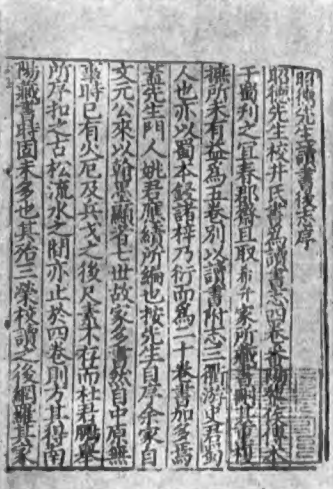 昭德先生讀書後志序
昭德先生校井氏書爲讀書志四卷番陽黎侯傳本
于蜀刋之宜春郡齋且取希弁家所藏書删其重複
摭所未有益爲五卷別以讀書附志三衢游史君
人也亦以蜀本鋟諸梓乃衍而爲二十卷書加多焉
蓋先生門人姚君應績所編也按先生自序余家自
文元公來以翰墨顯者七世故家多書然自中原無
事時已有火厄及兵戈之後尺素不存而杜君鵬舉
所序扣之古松流水之間亦止於四卷則方其得南
陽藏書時固未多也其殆三榮校讀之後綱羅其